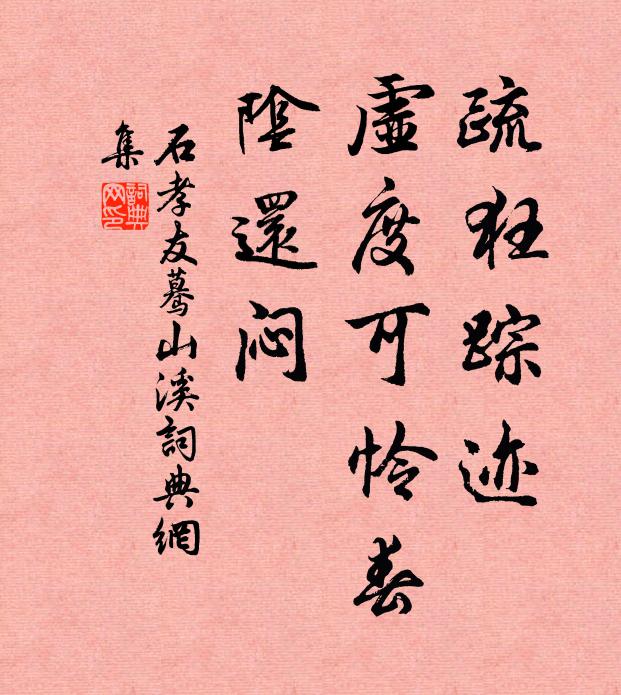 疏狂踪迹
虛度可怜春
陰還闷
石孝友蓦山溪詞典網
集
詞典
网印